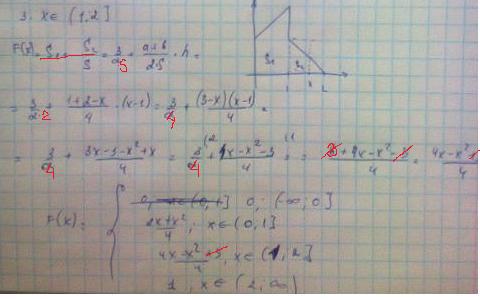 3. x ∈ (1,2]
F(x) = = 3/S + (a+b)/(2·S) · h =
S₁ S₂
1 x 2
= 3/(2·2) + (1+2-x)/4 · (x-1) = 3/4 + (3-x)(x-1)/4 =
= 3/4 + (3x-3-x²+x)/4 = 3/4 + (4x-x²-3)/4 = (3+4x-x²-3)/4 = (4x-x²)/4
F(x) = { 0, (-∞; 0]
(2x+x²)/4; x ∈ (0,1]
(4x-x²)/4, x ∈ (1, 2]
1, x ∈ (2, ∞)